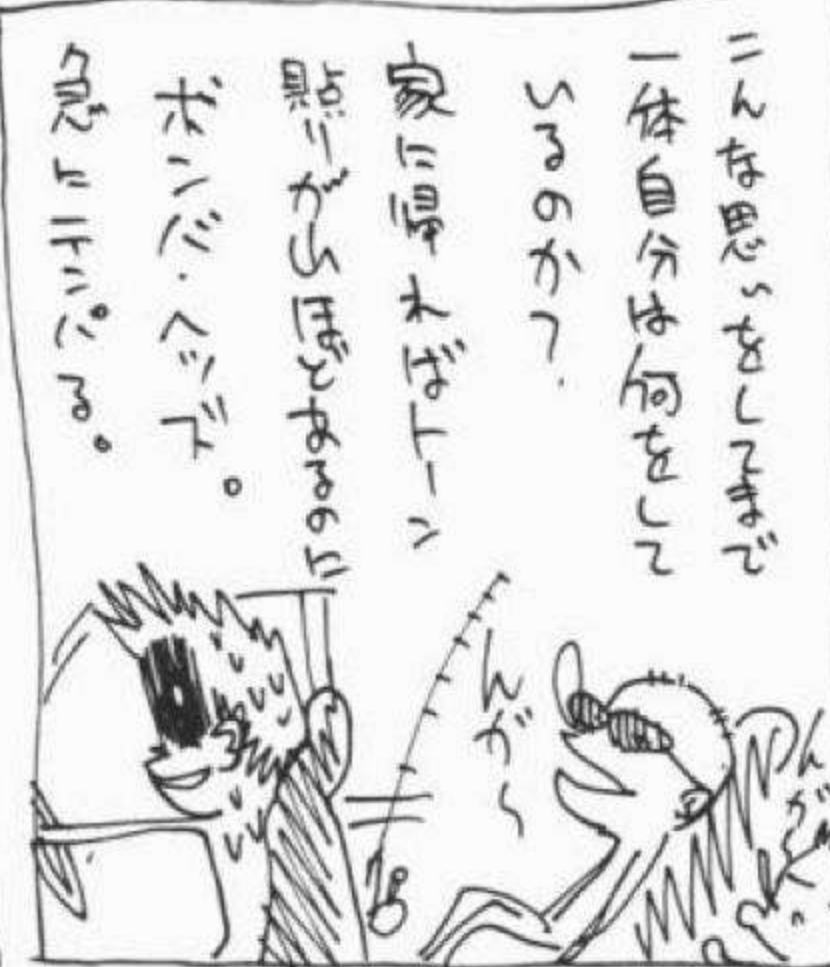 こんな思いをしてまで
一体自分は何をして
いるのか?
家に帰ればトーン
貼りが山ほどあるのに
ボンバ・ヘッズ。
急にテンパる。
んが〜
んが